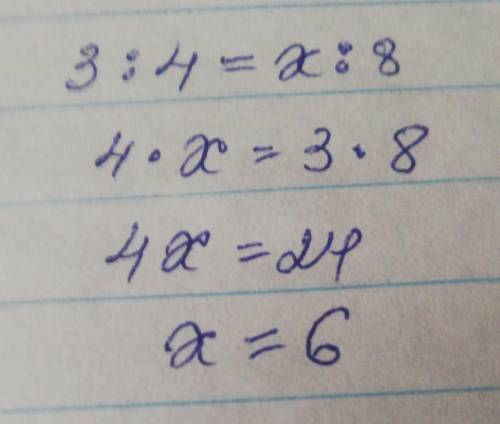 3 : 4 = x : 8
4 · x = 3 · 8
4x = 24
x = 6